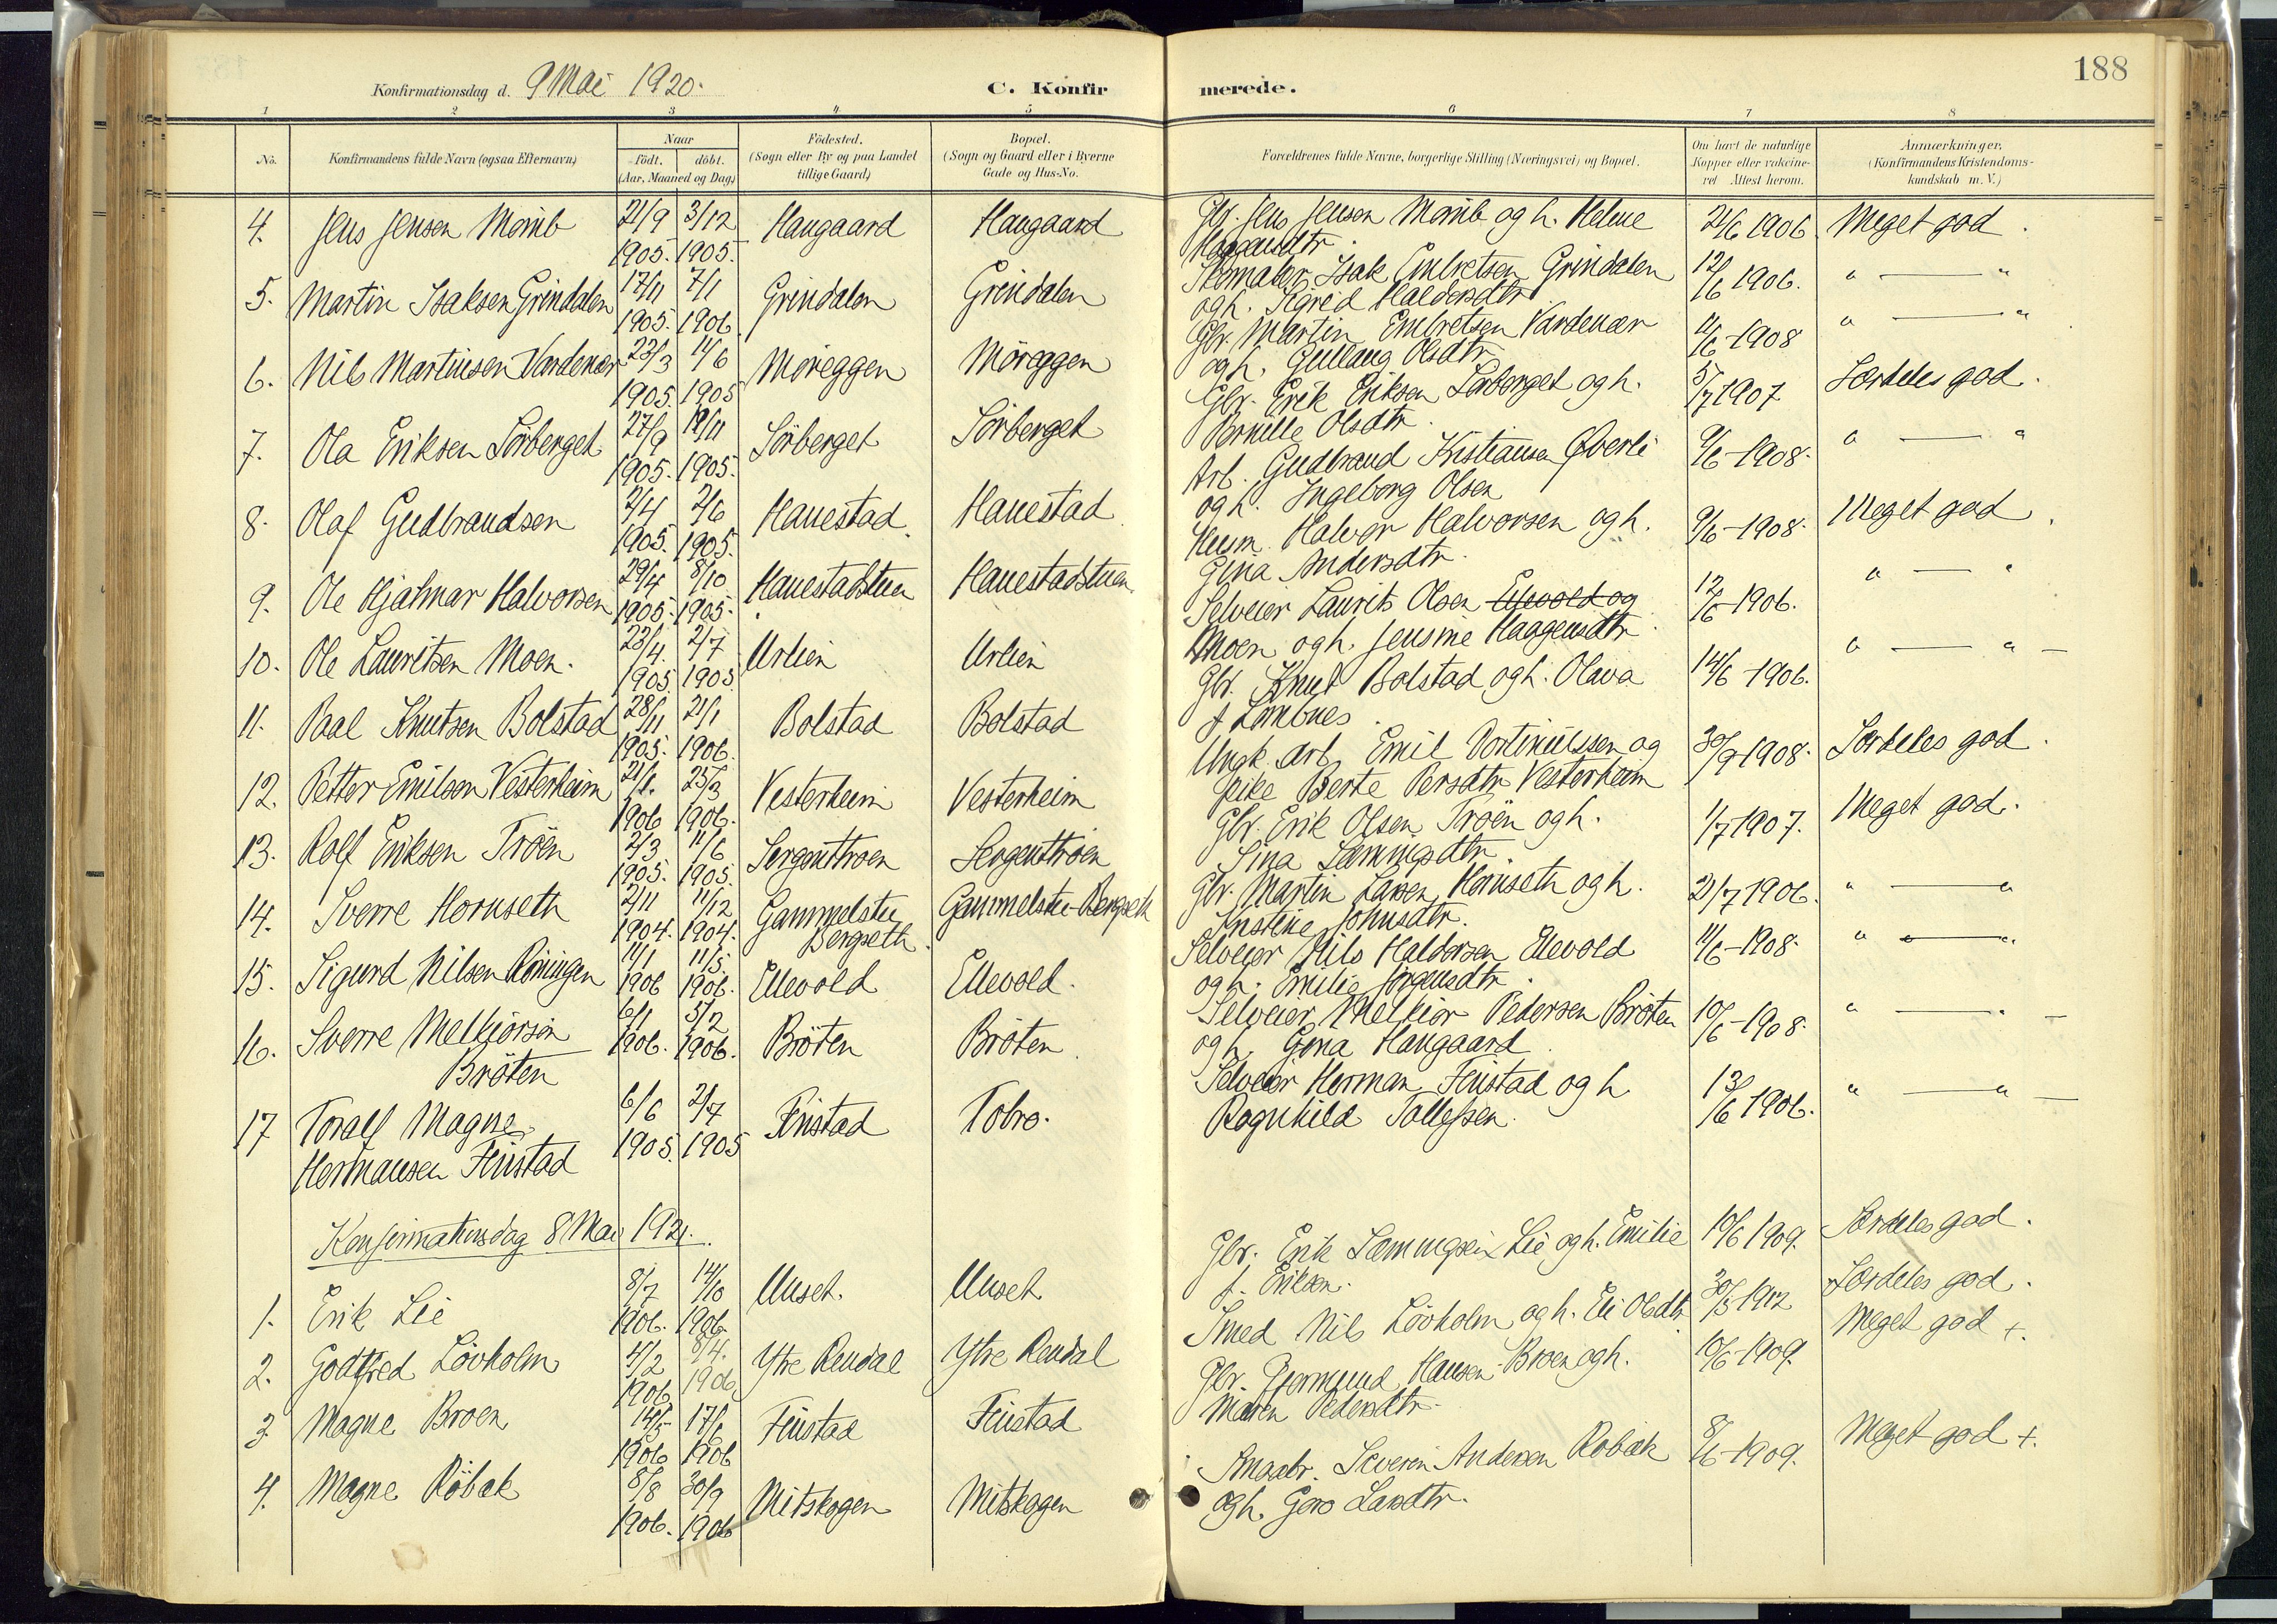 188
Konfirmationsdag d. 9 Mai 1920.
C. Konfirmerede.
1 2 3 4 5 6 7 8
No.
Konfirmandens fulde Navn (ogsaa Efternavn)
Naar
födt. döbt.
(Aar, Maaned og Dag)
Födested.
(Sogn eller By og paa Landet
tillige Gaard)
Bopæl.
(Sogn og Gaard eller i Byerne
Gade og Hus-No.
Forældrenes fulde Navne, borgerlige Stilling (Næringsvei) og Bopæl.
Om havt de naturlige
Kopper eller vakcine-
ret Attest herom.
Anmærkninger.
(Konfirmandens Kristendoms-
kundskab m. V.)
4. Jens Jensen Momb 21/9 1905. 3/12 1905. Haugaard Haugaard Gbr. Jens Jensen Momb og h. Helene 21/6 1906. Meget god.
5. Martin Isaksen Grindalen 17/11 1905. 7/1 1906 Grindalen Grindalen Isak Embretsen Grindalen
og h. Sigrid Haldorsdtr 12/6 1906. " — "
6. Nils Martinsen Vardenær 23/3 1905. 14/6 1905 Moreggen Möreggen Gbr. Martin Embretsen Vardenær
og h. Gullaug Olsdtr 11/6-1908 " — "
7. Ola Eriksen Sörberget 27/9 1905. 12/11 1905. Sörberget Sörberget Gbr. Erik Eriksen Sörberget og h.
Pernille Olsdtr. 5/7 1907 Særdeles god.
8. Olaf Gudbrandsen 2/4 1905. 2/6 1905. Hanestad Hanestad Arb. Gudbrand Kristiansen Øverli
og h. Ingeborg Olsen 9/6-1908. " — "
9. Ole Hjalmar Halvorsen 29/4 1905. 8/10 1905. Hanestadstuen Hanestadstuen Husm. Halvor Halvorsen og h.
Gina Andersdtr. 9/6-1908. Meget god.
10. Ole Lauritsen Moen. 23/4. 1905. 2/7 1905 Urlien Urlien Selveier Laurits Olsen Ellevold og
Moen og h. Jensine Haagensdtr. 12/6-1906. " — "
11. Paal Knutsen Bolstad 28/11 1905. 21/1 1906. Bolstad Bolstad Gbr. Knut Bolstad og h. Olava
f. Lombnes. 14/6-1906. " — " —
12. Petter Emilsen Vesterheim 21/1. 1906 25/3 1906. Vesterheim Vesterheim Ungk. Arb. Emil og
pike Berte Persdtr Vesterheim 30/9-1908. Særdeles god.
13. Rolf Eriksen Tröen 2/3 1905. 11/6 1905. Sergenttroen Sergenttröen Gbr. Erik Olsen Tröen og h.
Sina Sæmingsdtr 1/7 1907. Meget god.
14. Sverre Hornseth 2/11 1904. 11/12 1904. Gammelstu
Bergseth. Gammelstu-Bergseth Gbr. Martin Larsen Hornseth og h.
Kristine Johnsdtr. 21/7 1906. " — "
15. Sigurd Nilsen Röningen 14/1 1906 11/3. 1906. Ellevold Ellevold. Selveier Nils Haldorsen Ellevold
og h. Emilie Jörgensdtr. 11/6-1908. " — "
16. Sverre Melkiorsen
Bröten 6/1 1906. 5/2 1906. Bröten Bröten Selveier Melkior Pedersen Bröten
og h. Gina Haugaard 10/6-1908. " — " —
17 Toralf Magne
Hermansen Finstad 6/6 1905. 2/7 1905 Finstad Tobro. Selveier Herman Finstad og h
Ragnhild Tollefsen. 13/6 1906. " — " —
Konfirmationsdag 8 Mai 1921.
1. Erik Lie 8/7 1906. 14/10 1906. Unset. Unset Gbr. Erik Sæmingsen Lie og h. Emilie
f. Eriksen. 10/6 1909. Særdeles god.
2. Godtfred Lövholm 4/2 1906 8/4. 1906 Ytre Rendal Ytre Rendal Smed Nils Lövholm og h. Eli Olsdtr 30/5-1912 Særdeles god.
3. Magne Broen 14/5 1906 17/6 1906 Finstad Finstad Gbr. Gjermund Hansen Broen og h.
Maren Pedersdtr. 10/6-1909. Meget god +.
4. Magne Röbæk 8/8 1906. 30/9 1906 Mitskogen Mitskogen Smaabr. Severin Andersen Röbæk
og h. Gjero Larsdtr. 8/6-1909. Meget god +.